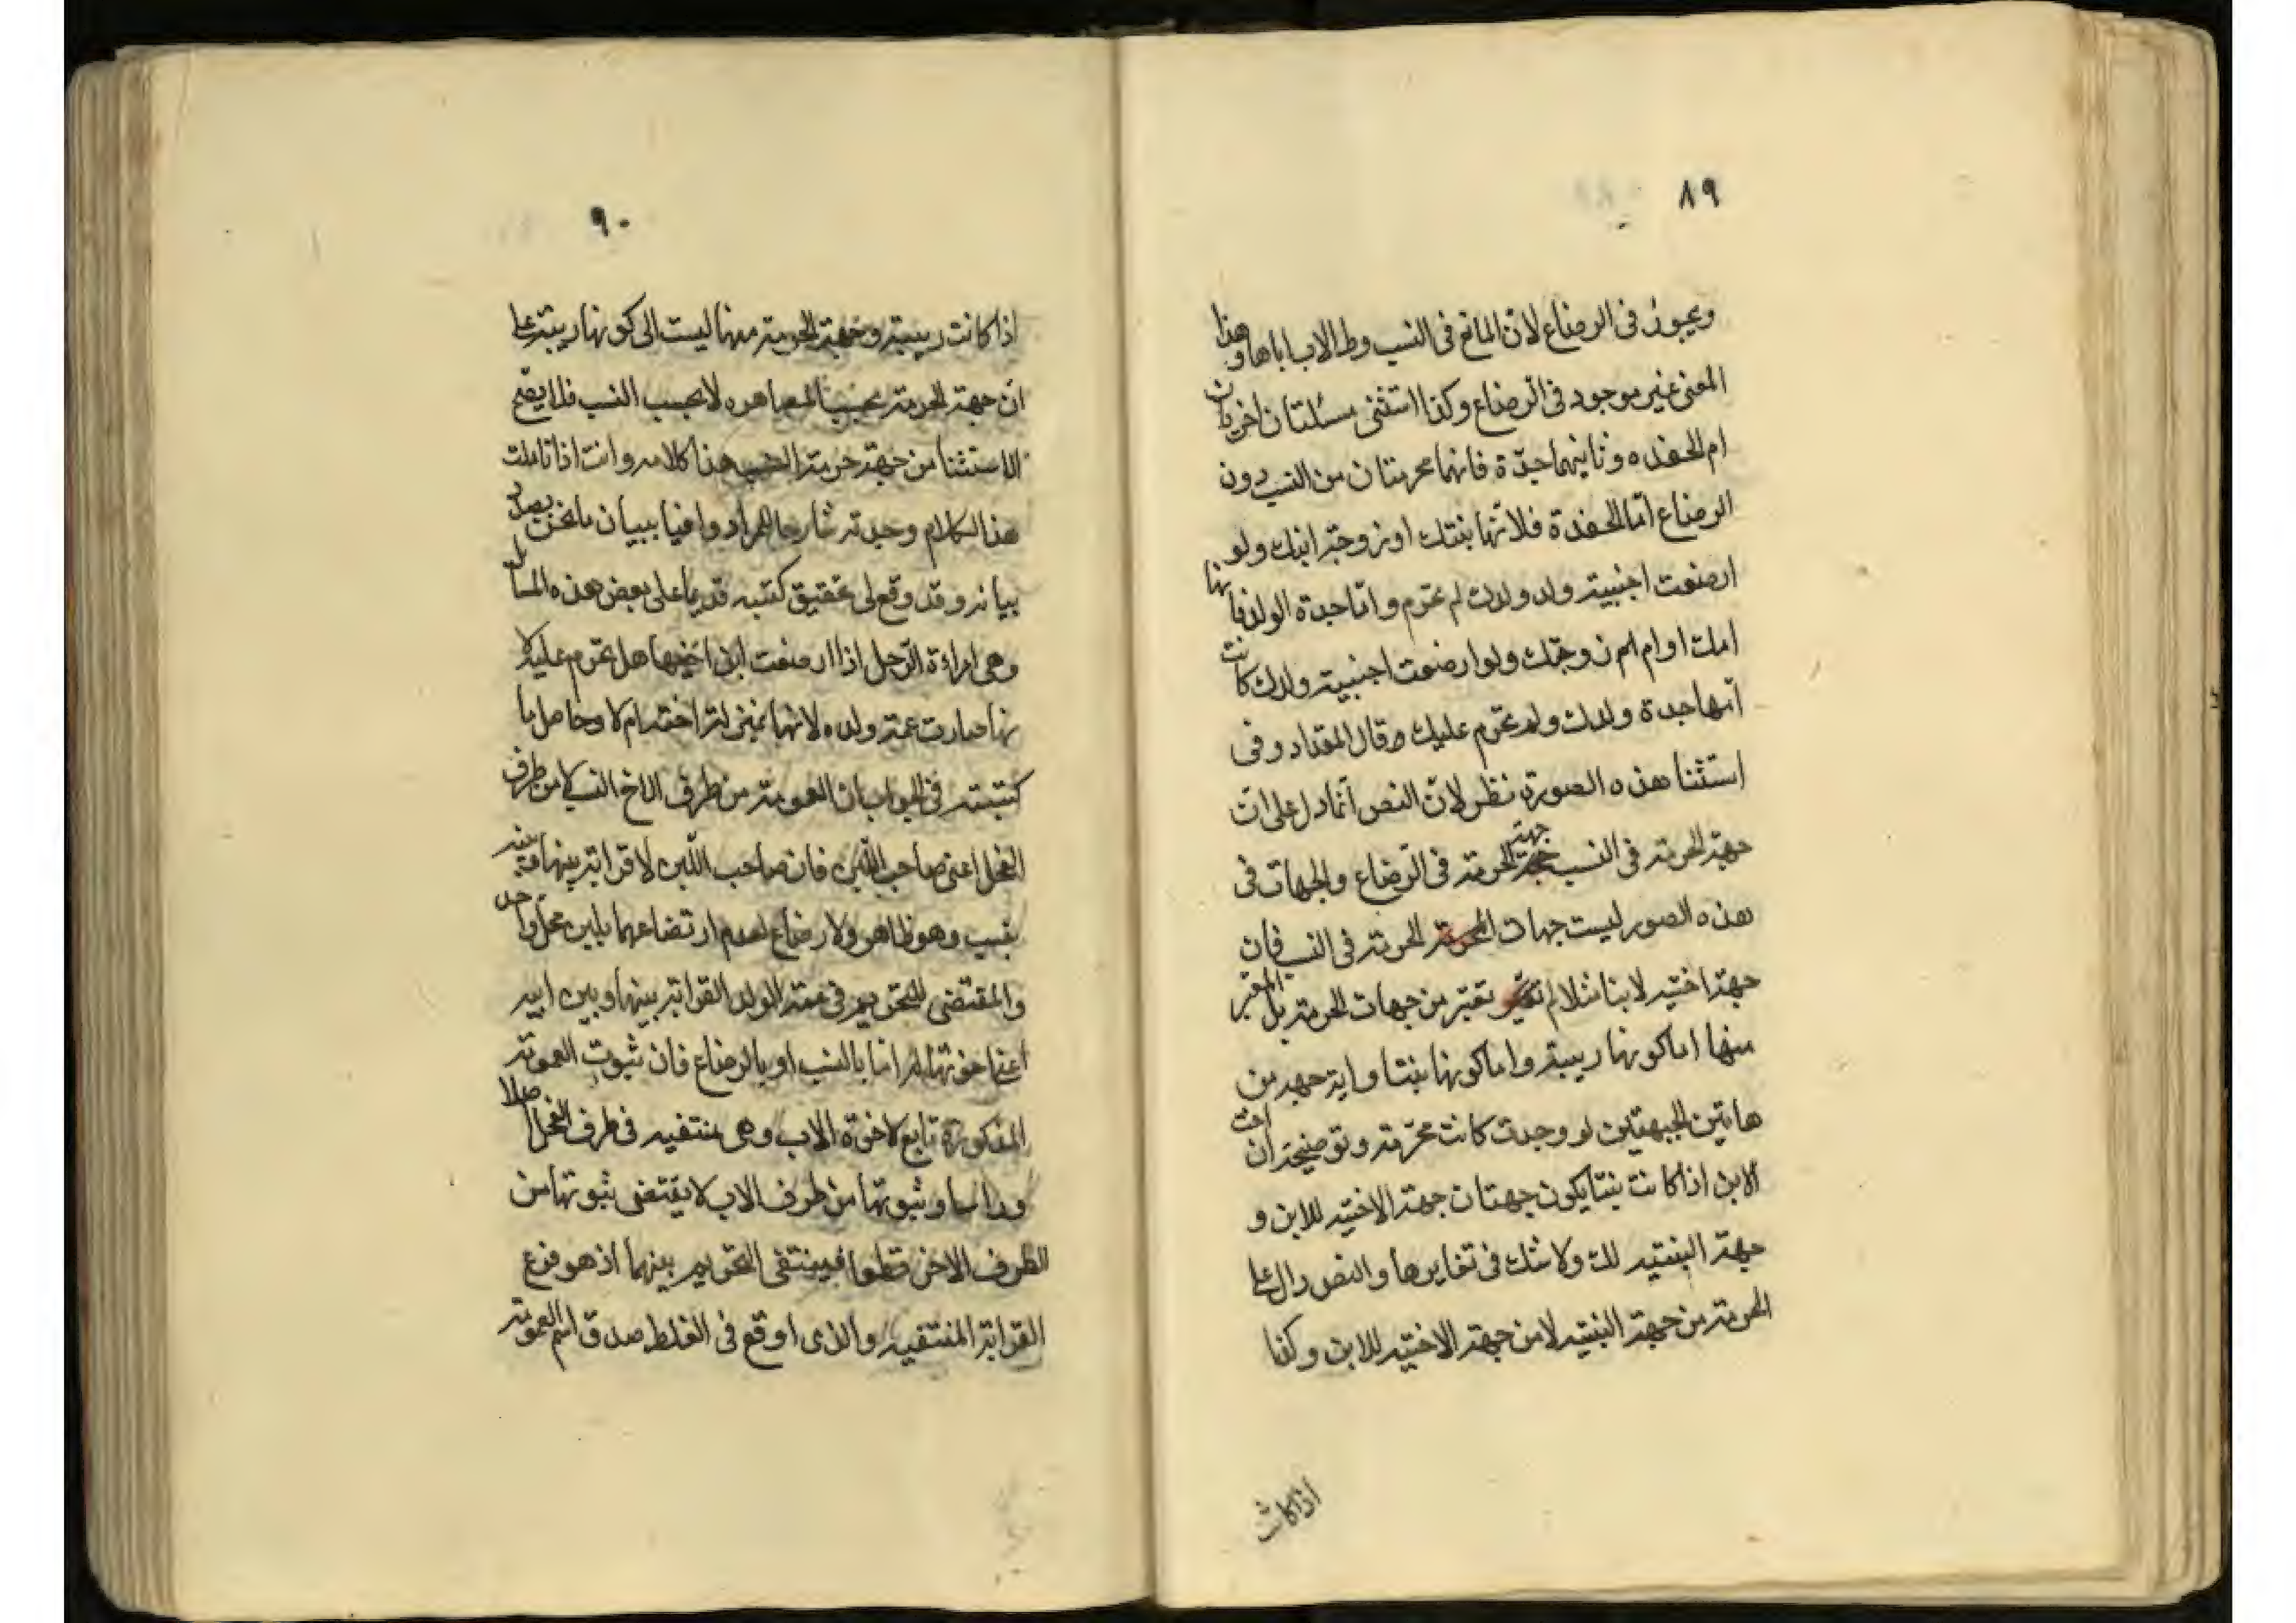 ٨٩
ويجوز فى الرضاع لان المانع فى النسب وطا الاب اباها وهذا
المعنى غير موجود فى الرضاع وكذا استثنى مسئلتان اخريان
ام الحفده وثانيهما جدّة فانهما محرمتان من النسب دون
الرضاع امّا الحفدة فلانّها بنتك او زوجة ابنك ولو
ارضعت اجنبية ولد ولدك لم تحرم وامّا جدة الولد فانها
امك او ام زوجتك ولو ارضعت اجنبية ولدك كانت
امها جدة ولدك ولم تحرم عليك قال المقداد وفى
استثنا هذه الصورة نظر لانّ النص انّما دل على ان
جهة الحرمة فى النسب جهة الحرمة فى الرّضاع والجهات فى
هذه الصور ليست جهات الحرمة فى النسب فان
جهة اختيه لابنا مثلا لم تعتبر من جهات الحرمة بل المعتبر
منها اما كونها ريبة واما كونها بنتا واية جهه من
هاتين الجهتين لو وجدت كانت محرّمة وتوضيحة ان اخت
الابن اذا كانت بنتا يكون جهتان جهة الاختيه للابن و
جهة البنتيه لك ولا شك فى تغايرها والنص دال على
الحرمة من جهة البنتيه لا من جهة الاختيه للابن وكذا
اذا كانت
٩٠
اذا كانت ربيبة وجهة الحرمة منها ليست الى كونها ريبة على
ان جهة الحرمة بحسب المصاهره لا بحسب النسب فلا يصح
الاستثنا من جهة حرمة النسب هذا كلامه وانت اذا تاملت
هذا الكلام وجدته شارحا للمراد وافيا ببيان ما نحن بصدد
بيانه وقد وقع لى تحقيق كتبته قديما على بعض هذه المسائل
وهى امراءة الرّجل اذا ارضعت ابن اخيها هل تحرم عليه لا
نها صارت عمة ولده لانها بمنزلة اخته ام لا وحاصل ما
كتبته فى الجواب ان العمومة من طرف الاخ النسب لا من طرف
الفحل اعنى صاحب اللّبن فان صاحب اللّبن لا قرابة بينها وبينه
بنسب وهو ظاهر ولا رضاع لعدم ارتضاعهما بلبن فحل واحد
والمقتضى للتحريم فى عمة الولد القرابة بينها وبين ابيه
اعنى اخوتها له امّا بالنسب او بالرضاع فان ثبوت العمومة
المذكورة تابع لاخوة الاب وهى منتفيه فى طرف الفحل اصلا
وراسا وثبوتها من طرف الاب لا يقتضى ثبوتها من
الطرف الاخر قطعا فينتفى التحريم بينهما اذ هو فرع
القرابة المنتفيه والذى اوقع فى الغلط صدق اسم العمومة